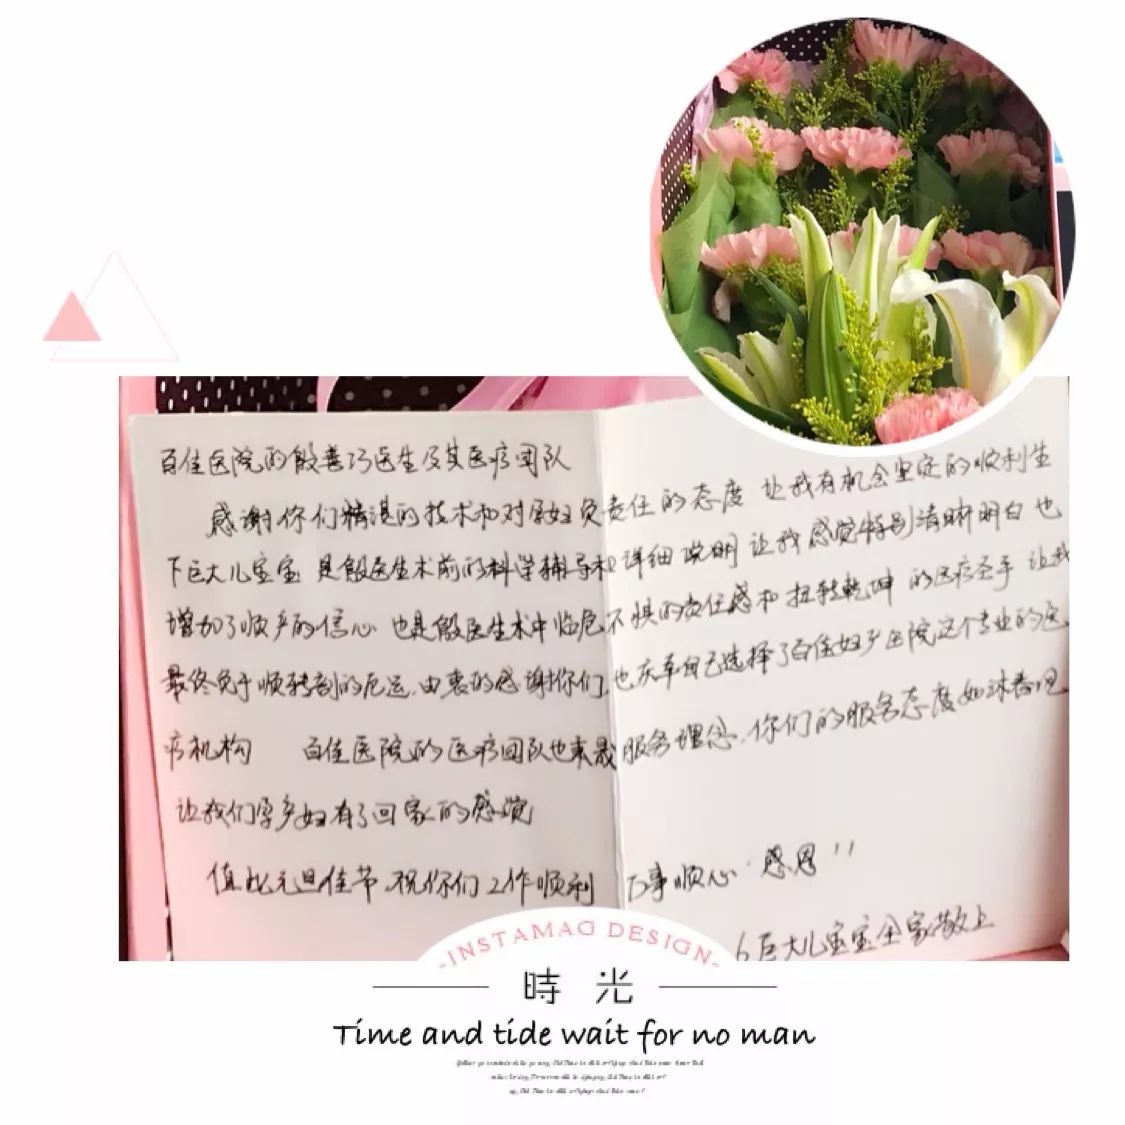 百佳医院的殷善巧医生及其医疗团队
感谢你们精湛的技术和对孕妇负责任的态度 让我有机会坚定的顺利生
下巨大儿宝宝 是殷医生术前的科学辅导和详细说明 让我感觉特别清晰明白 也
增加了顺产的信心 也是殷医生术中临危不惧的责任感和扭转乾坤的医疗圣手 让我
最终免于顺转剖的厄运.由衷的感谢你们.也庆幸自己选择了百佳妇产医院这个专业的医
疗机构 百佳医院的医疗团队也来最服务理念.你们的服务态度如沐春风
让我们孕产妇有了回家的感觉
值此元旦佳节.祝你们工作顺利 万事顺心 感恩!!
巨大儿宝宝全家敬上
-INSTAMAG DESIGN-
時光
Time and tide wait for no man